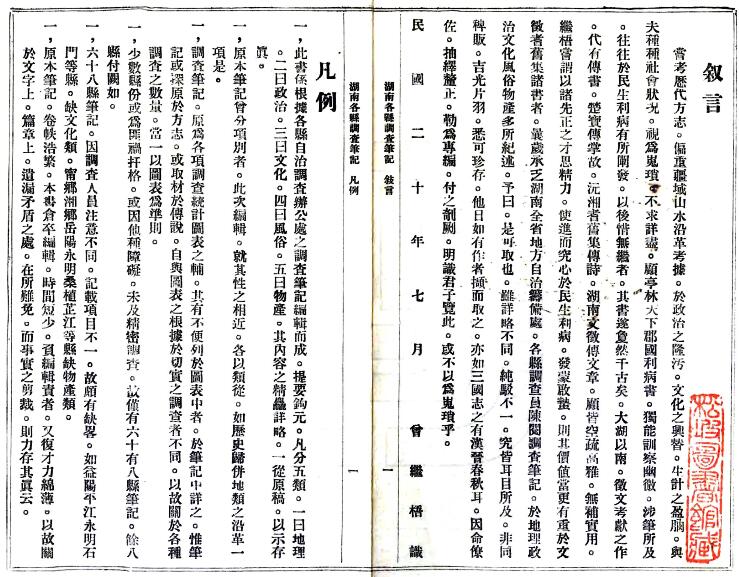 叙言
嘗考歷代方志。偏重疆域山水沿革考據。於政治之隆污。文化之興替。生計之盈朒。與
夫種種社會狀況。視爲嵬瑣。不求詳盡。顧亭林天下郡國利病書。獨能訓察幽微。涉筆所及
。往往於民生利病有所闡發。以後惜無繼者。其書遂敻然千古矣。大湖以南。徵文考獻之作
。代有傳書。楚寶傳掌故。沅湘耆舊集傳詩。湖南文徵傳文章。顧皆空疏高雅。無補實用。
繼梧嘗謂以諸先正之才思精力。使進而究心於民生利病。發蒙啟蟄。則其價值當更有重於文
徵耆舊集諸書者。曩歲承乏湖南全省地方自治籌備處。各縣調查員陳閱調查筆記。於地理政
治文化風俗物產多所紀述。予曰。是可取也。雖詳略不同。純駁不一。究皆耳目所及。非同
稗販。吉光片羽。悉可珍存。他日如有作者擷而取之。亦如三國志之有漢晉春秋耳。因命僚
佐。抽繹釐正。勒爲專編。付之剞劂。明識君子覽此。或不以爲嵬瑣乎。
民國二十年七月曾繼梧識
湖南各縣調查筆記 敍言
一
湖南各縣調查筆記 凡例
一
凡例
一,此書係根據各縣自治調查辦公處之調查筆記編輯而成。提要鈎元。凡分五類。一曰地理
。二曰政治。三曰文化。四曰風俗。五曰物產。其內容之精麤詳略。一從原稿。以示存
眞。
一,原本筆記曾分項別者。此次編輯。就其性之相近。各以類從。如歷史歸併地類之沿革一
項是。
一,調查筆記。原爲各項調查統計圖表之輔。其有不便列於圖表中者。於筆記中詳之。惟筆
記或探原於方志。或取材於傳說。自與圖表之根據於切實之調查者不同。以故關於各種
調查之數量。當一以圖表爲準則。
一,少數縣份或爲匪禍扞格。或因他種障礙。未及精密調查。故僅有六十有八縣筆記。餘八
縣付闕如。
一,六十八縣筆記。因調查人員注意不同。記載項目不一。故頗有缺畧。如益陽平江永明石
門等縣。缺文化類。甯鄉湘鄉岳陽永明桑植芷江等縣缺物產類。
一,原本筆記。卷帙浩繁。本書倉卒編輯。時間短少。負編輯責者。又復才力綿薄。以故關
於文字上。篇章上。遺漏矛盾之處。在所難免。而事實之剪裁。則力存其眞云。
松坡圖書館藏